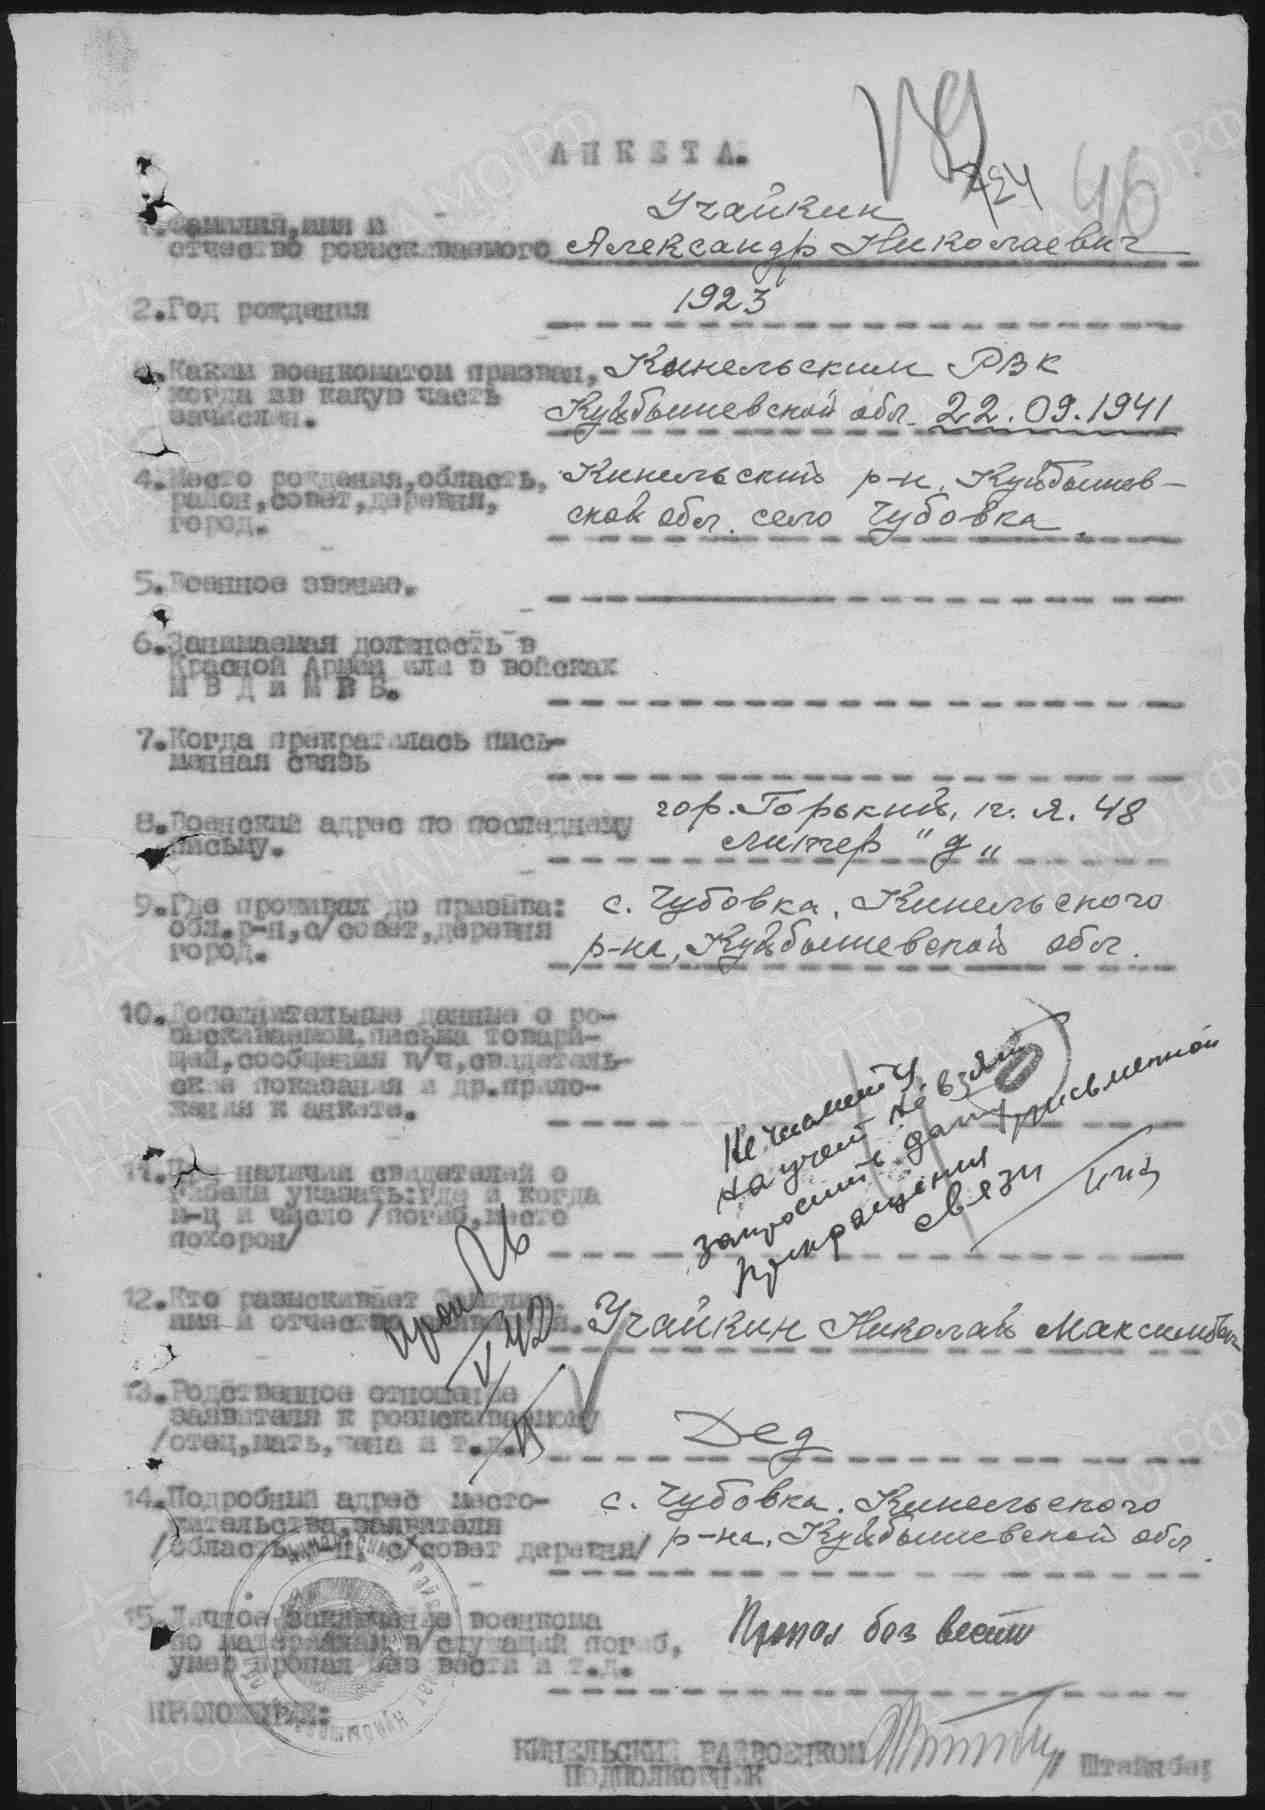 АНКЕТА.
724
46
1. Фамилия, имя и
отчество розыскиваемого
Учайкин
Александр Николаевич
2. Год рождения
1923
3. Каким военкоматом призван,
когда и в какую часть
зачислен.
Кинельским РВК
Куйбышевской обл. 22.09.1941
4. Место рождения, область,
район, совет, деревня,
город.
Кинельский р-н, Куйбышев-
ской обл. село Чубовка.
5. Военное звание.
6. Занимаемая должность в
Красной Армии или в войсках
МВД и МГБ.
7. Когда прекратилась пись-
менная связь
8. Военский адрес по последнему
письму.
гор. Горький, п. я. 48
литер "д"
9. Где проживал до призыва:
обл. р-н, с/совет, деревня
город.
с. Чубовка, Кинельского
р-на, Куйбышевской обл.
10. Дополнительные данные о ро-
зыскиваемом, письма товари-
щей, сообщения в/ч, свидетель-
ские показания и др. прило-
жения к анкете.
на учет не взят
запросить дату письменной
прекращения
связи
11. При наличии свидетелей о
гибели указать: где и когда
м-ц и число /погиб, место
похорон/
12. Кто разыскивает Фамилия,
имя и отчество заявителя.
Учайкин Николай Максимович
V 42
13. Родственное отношение
заявителя к розыскиваемому
/отец, мать, жена и т.д./
Дед
14. Подробный адрес место-
жительства заявителя
/область, р-н, с/совет деревня/
с. Чубовка, Кинельского
р-на, Куйбышевской обл.
15. Личное заключение военкома
по материалам в/служащий погиб,
умер, пропал без вести и т.д.
Пропал без вести
ПРИЛОЖЕНИЕ:
КИНЕЛЬСКИЙ РАЙВОЕНКОМ
ПОДПОЛКОВНИК